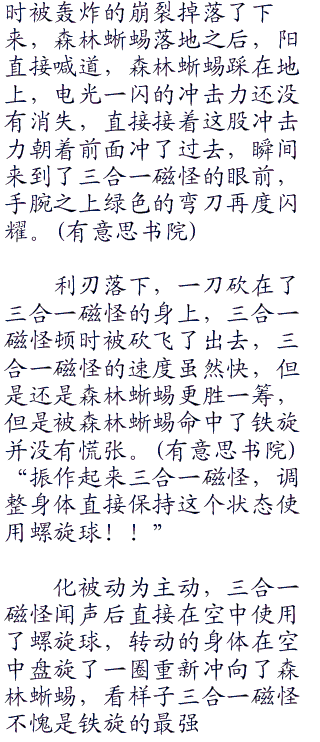 时被轰炸的崩裂掉落了下
来，森林蜥蜴落地之后，阳
直接喊道，森林蜥蜴踩在地
上，电光一闪的冲击力还没
有消失，直接接着这股冲击
力朝着前面冲了过去，瞬间
来到了三合一磁怪的眼前，
手腕之上绿色的弯刀再度闪
耀。(有意思书院)
利刃落下，一刀砍在了
三合一磁怪的身上，三合一
磁怪顿时被砍飞了出去，三
合一磁怪的速度虽然快，但
是还是森林蜥蜴更胜一筹，
但是被森林蜥蜴命中了铁旋
并没有慌张。(有意思书院)
“振作起来三合一磁怪，调
整身体直接保持这个状态使
用螺旋球！！”
化被动为主动，三合一
磁怪闻声后直接在空中使用
了螺旋球，转动的身体在空
中盘旋了一圈重新冲向了森
林蜥蜴，看样子三合一磁怪
不愧是铁旋的最强